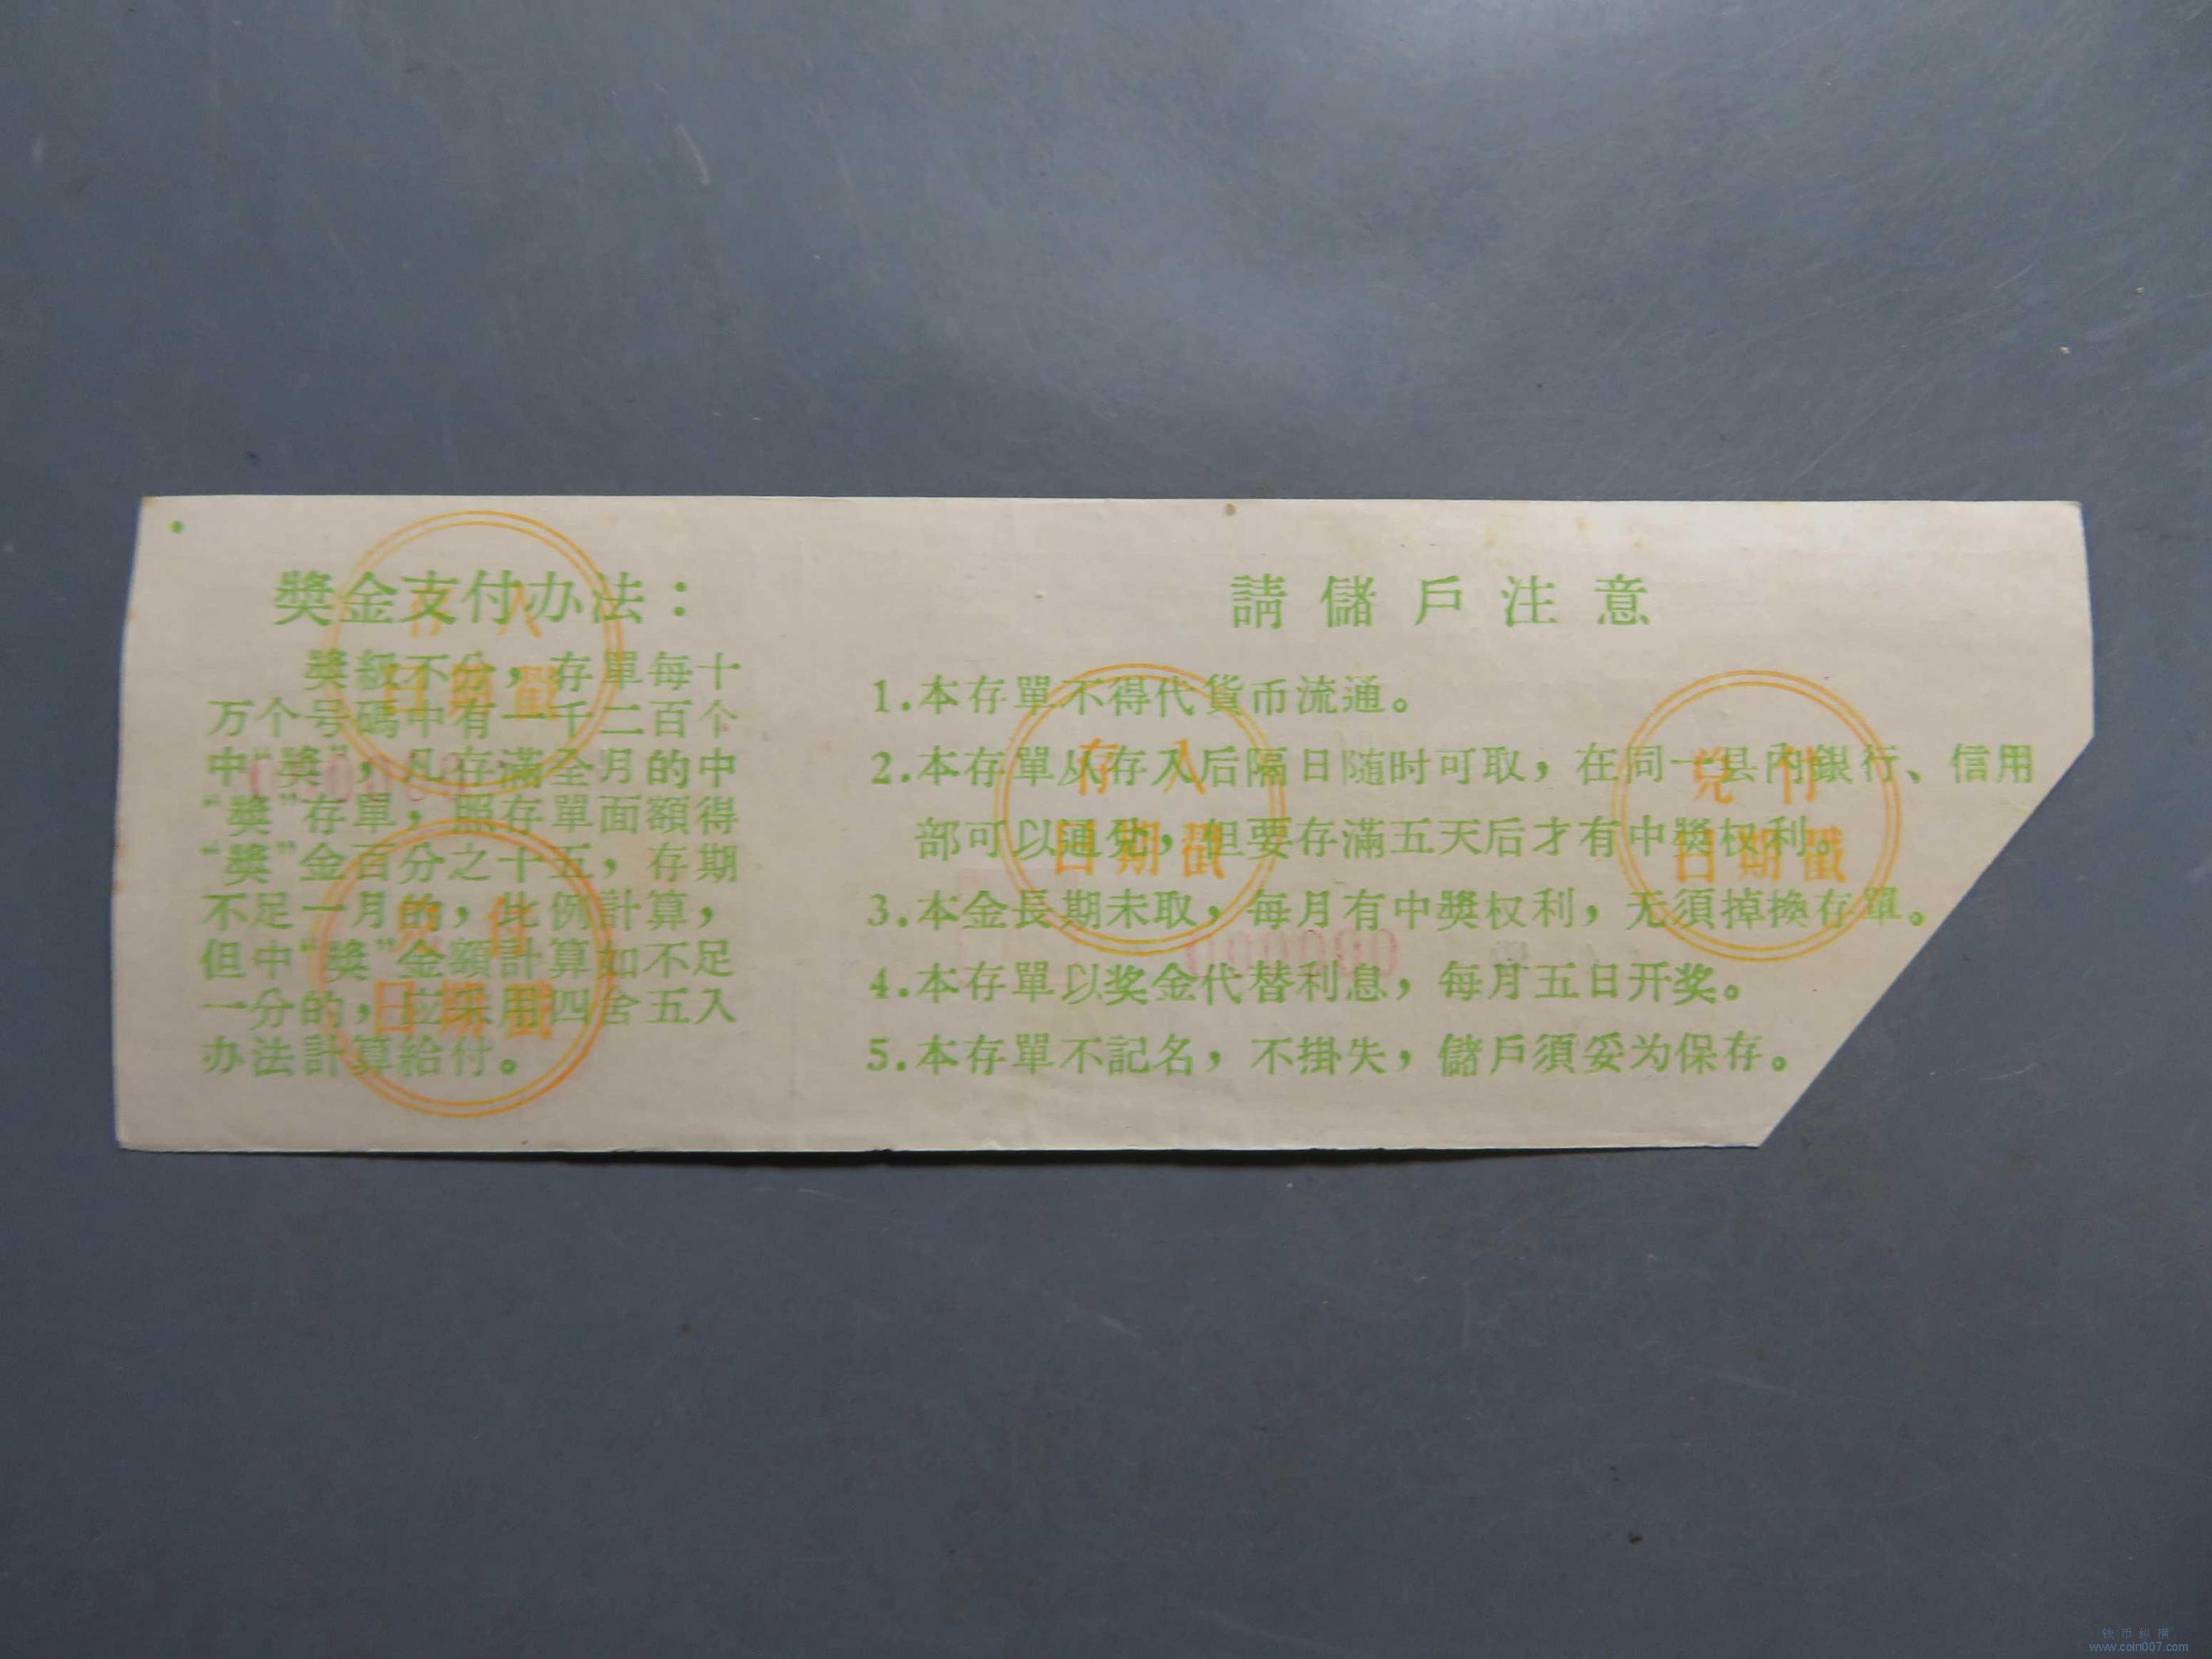 獎金支付办法：
獎級不分，存單每十
万个号碼中有一千二百个
中“獎”，凡存滿全月的中
“獎”存單，照存單面額得
“獎”金百分之十五，存期
不足一月的，比例計算，
但中“獎”金額計算如不足
一分的，应采用四舍五入
办法計算給付。
存入
日期戳
兑付
日期戳
請儲戶注意
1.本存單不得代貨币流通。
2.本存單从存入后隔日随时可取，在同一县內銀行、信用
部可以通兑，但要存滿五天后才有中獎权利。
3.本金長期未取，每月有中獎权利，无須掉換存單。
4.本存單以奖金代替利息，每月五日开奖。
5.本存單不記名，不掛失，儲戶須妥为保存。
存入
日期戳
兑付
日期戳
000000
钱币纵横
www.coin007.com